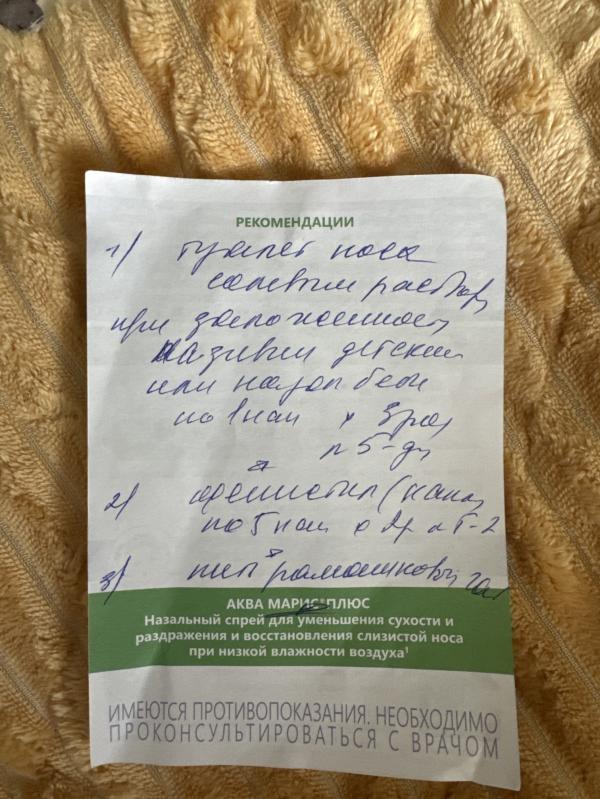 РЕКОМЕНДАЦИИ
1) туалет носа
солевым раствор
при заложенност
Називин детский
или назол беби
по 1 кап х 3 раз
n 5-дн
2) (капл
по 5 кап х 2р n
3) пить ромашковый чай
АКВА МАРИС® ПЛЮС
Назальный спрей для уменьшения сухости и
раздражения и восстановления слизистой носа
при низкой влажности воздуха¹
ИМЕЮТСЯ ПРОТИВОПОКАЗАНИЯ. НЕОБХОДИМО
ПРОКОНСУЛЬТИРОВАТЬСЯ С ВРАЧОМ